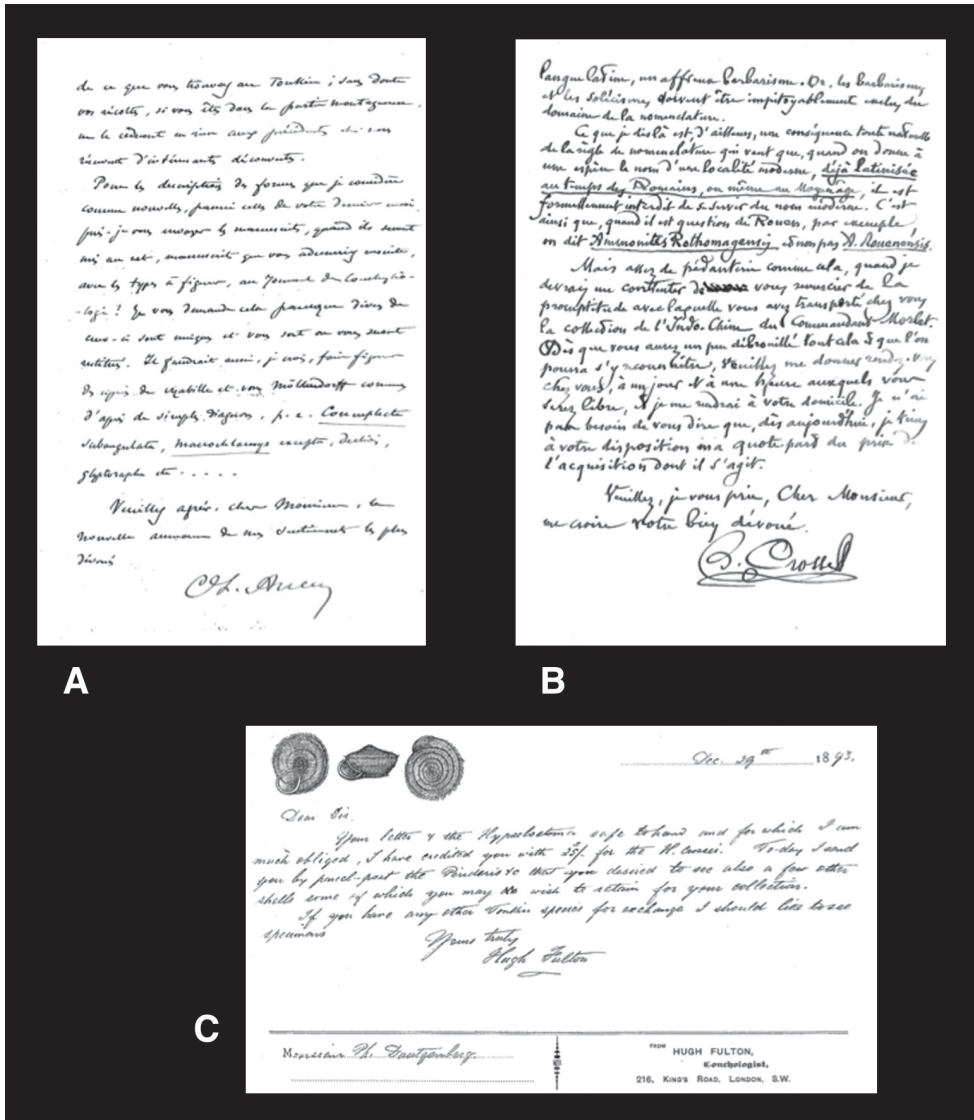 de ce que vous trouvez au Tonkin ; sans doute
vos récoltes, si vous êtes dans la partie montagneuse,
ne le cèdent en rien aux précédents et nous
d'intéressants découverts.
Pour les descriptions des formes que je considère
comme nouvelles, parmi celles de votre dernier envoi
puis-je vous envoyer les manuscrits, quand ils seront
mis au net, manuscrits que vous adresserez ensuite,
avec les types à figurer, au Journal de Conchylio-
-logie ? Je vous demande cela parce que divers de
ceux-ci sont uniques et vous sont ou vous seront
restitués. Il faudrait aussi, je crois, faire figurer
les de et von Möllendorff connus
d'après de simples diagnoses, p. e.
subangulata, Macrochlamys excepta,
glyptoraphe etc . . . . .
Veuillez agréer, cher Monsieur, la
nouvelle assurance de mes sentiments les plus
dévoués
A
langue latine, un affreux barbarisme. Or, les barbarismes
et les solécismes doivent être impitoyablement exclus du
domaine de la nomenclature.
Ce que je dis là est, d'ailleurs, une conséquence toute naturelle
de la règle de nomenclature qui veut que, quand on donne à
une espèce le nom d'une localité moderne, déjà latinisée
au temps des Romains, ou même au Moyen-âge, il est
formellement interdit de se servir du nom moderne. C'est
ainsi que, quand il est question de Rouen, par exemple,
on dit Ammonites Rothomagensis et non pas A. Rouenensis.
Mais assez de pédanterie comme cela, quand je
devrais me contenter de vous remercier de la
promptitude avec laquelle vous avez transporté chez vous
la collection de l'Indo-Chine du Commandant Morlet.
Dès que vous aurez un peu débrouillé tout cela & que l'on
pourra s'y reconnaître, veuillez me donner rendez-vous
chez vous, à un jour & à une heure auxquels vous
serez libre, & je me rendrai à votre domicile. Je n'ai
pas besoin de vous dire que, dès aujourd'hui, je tiens
à votre disposition ma quote part du prix de
l'acquisition dont il s'agit.
Veuillez, je vous prie, Cher Monsieur,
me croire votre bien dévoué.
Crosse
B
Dec. 29th 1893.
Dear Sir.
Your letter & the Hypselostoma safe to hand and for which I am
much obliged, I have credited you with 25/- for the H. crossei. To-day I send
you by parcel-post the &c that you desired to see also a few other
shells some of which you may wish to retain for your collection.
If you have any other Tonkin species for exchange I should like to see
specimens
Yours truly
Hugh Fulton
C
Monsieur Ph. Dautzenberg.
FROM HUGH FULTON,
Conchologist,
216, KING'S ROAD, LONDON, S.W.